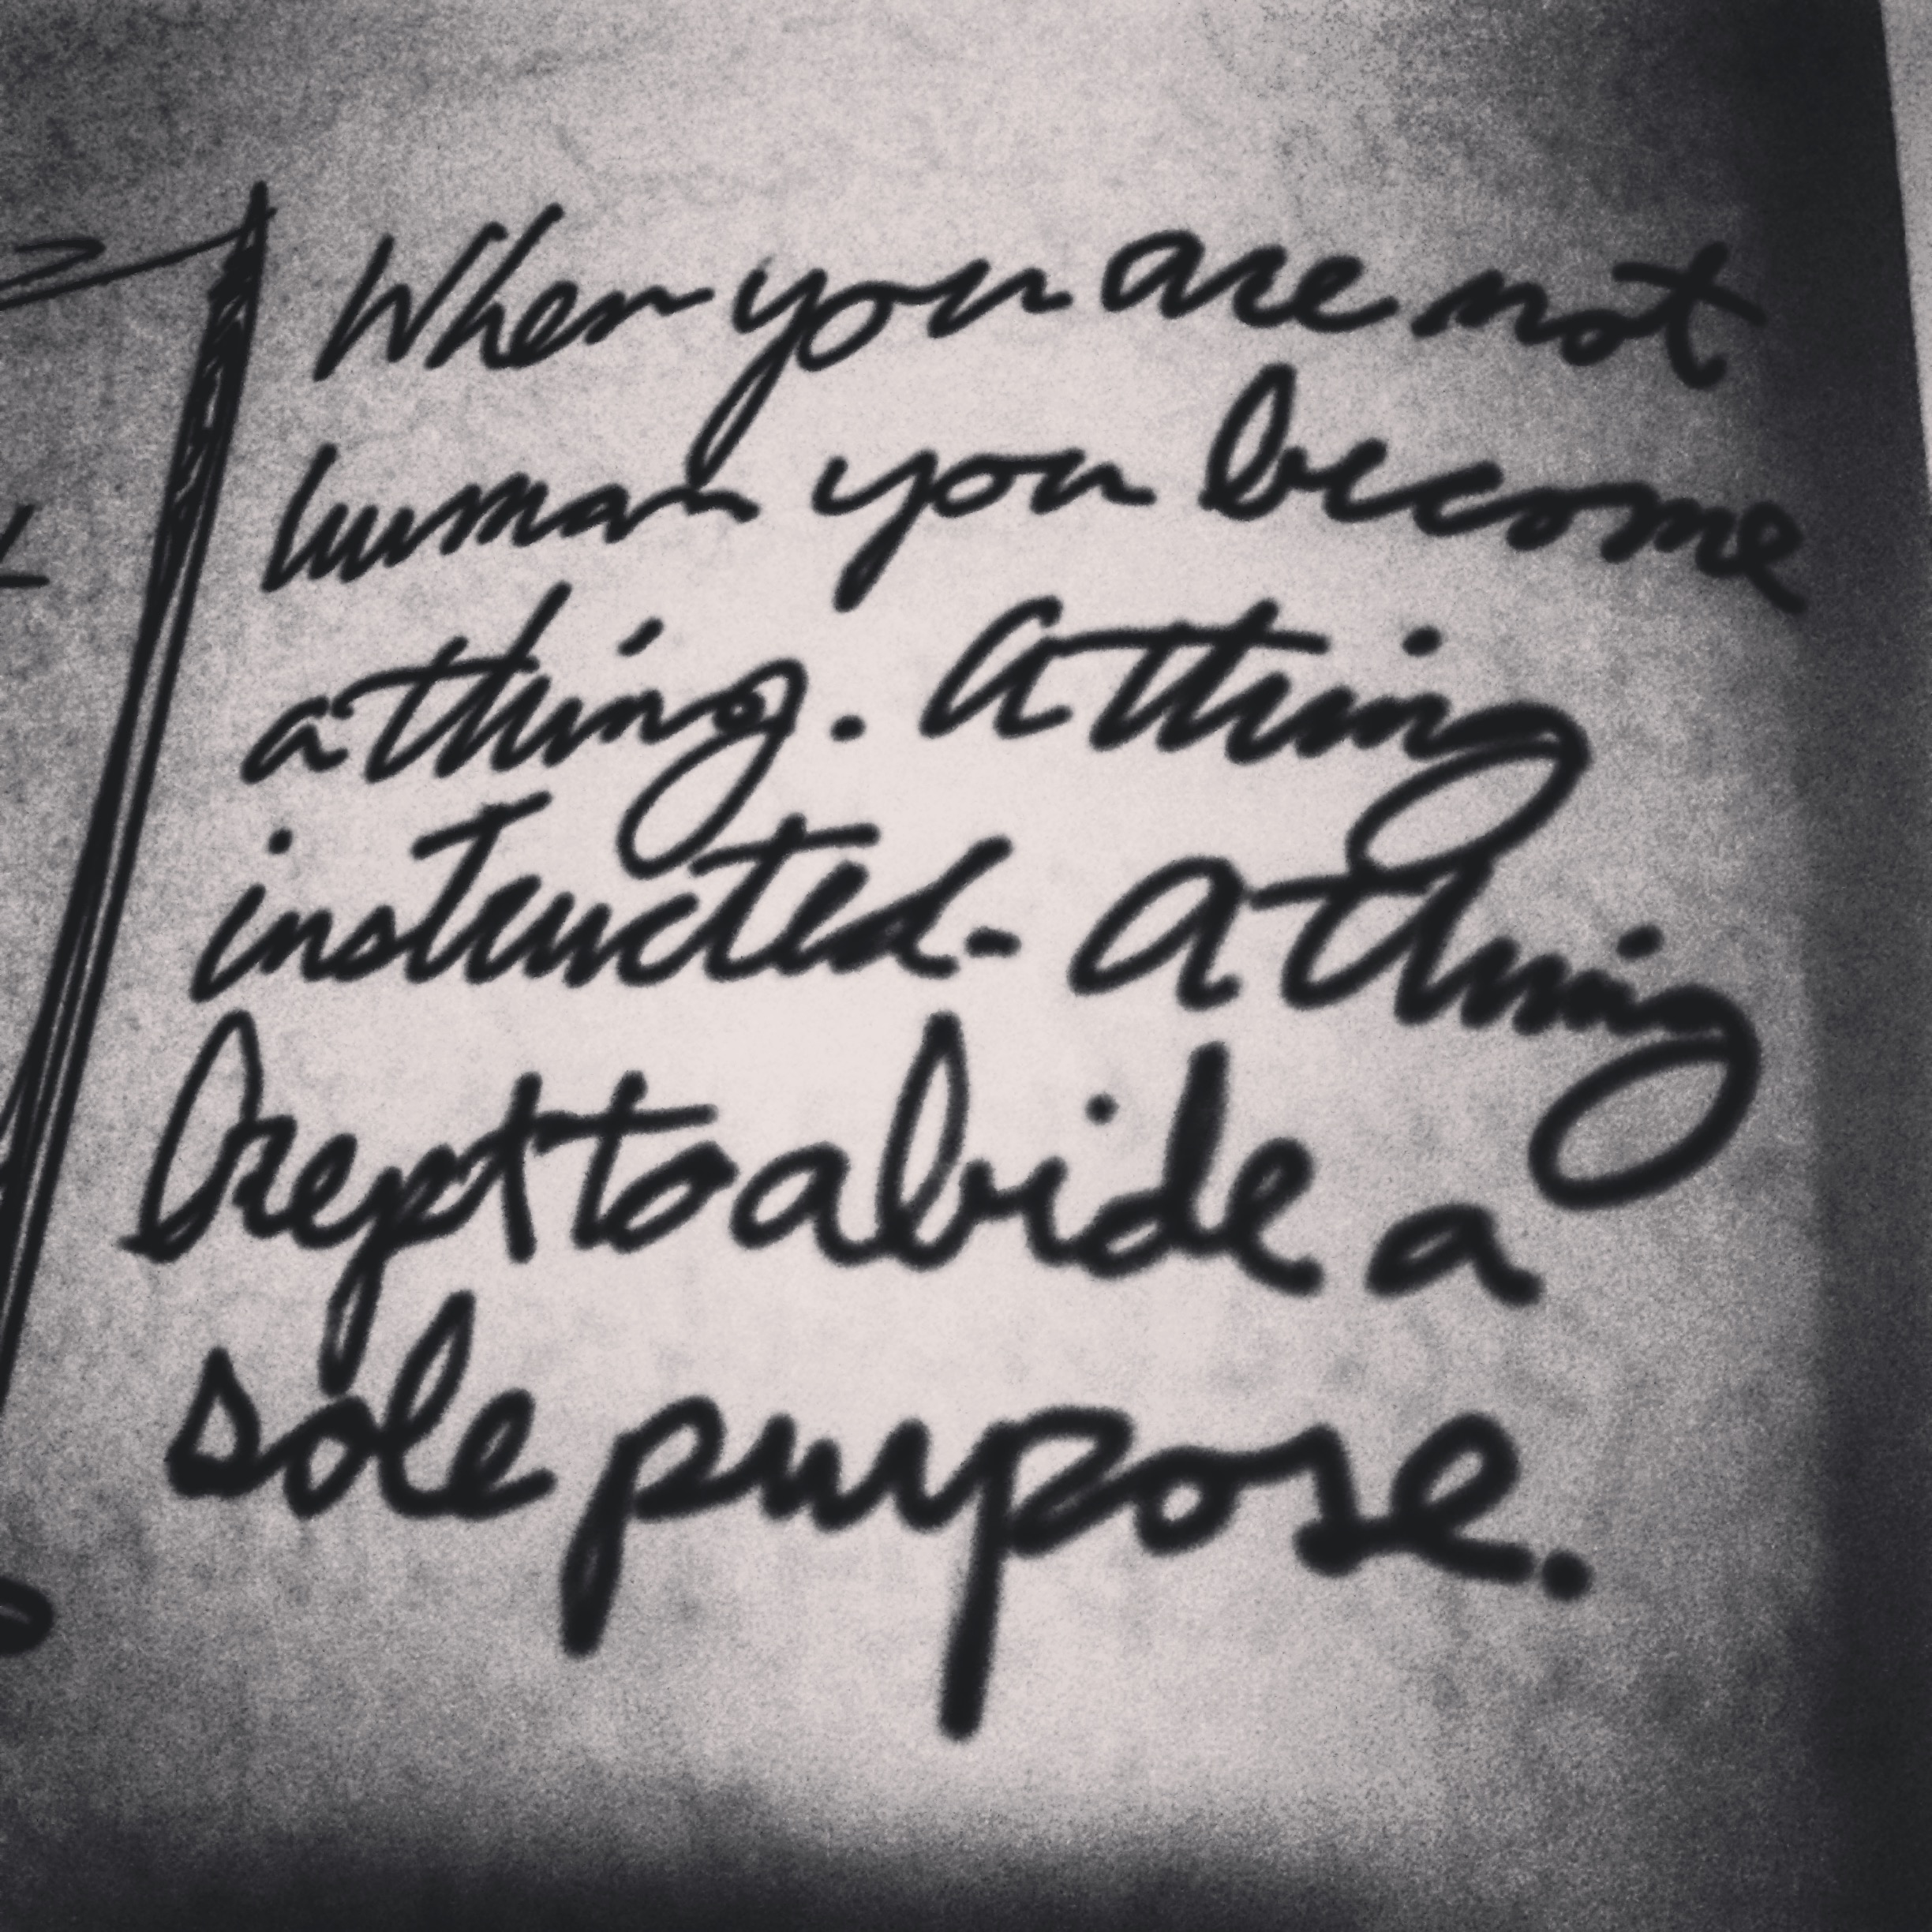 When you are not
human you become
a thing. A thing
instructed- A thing
kept to abide a
sole purpose.